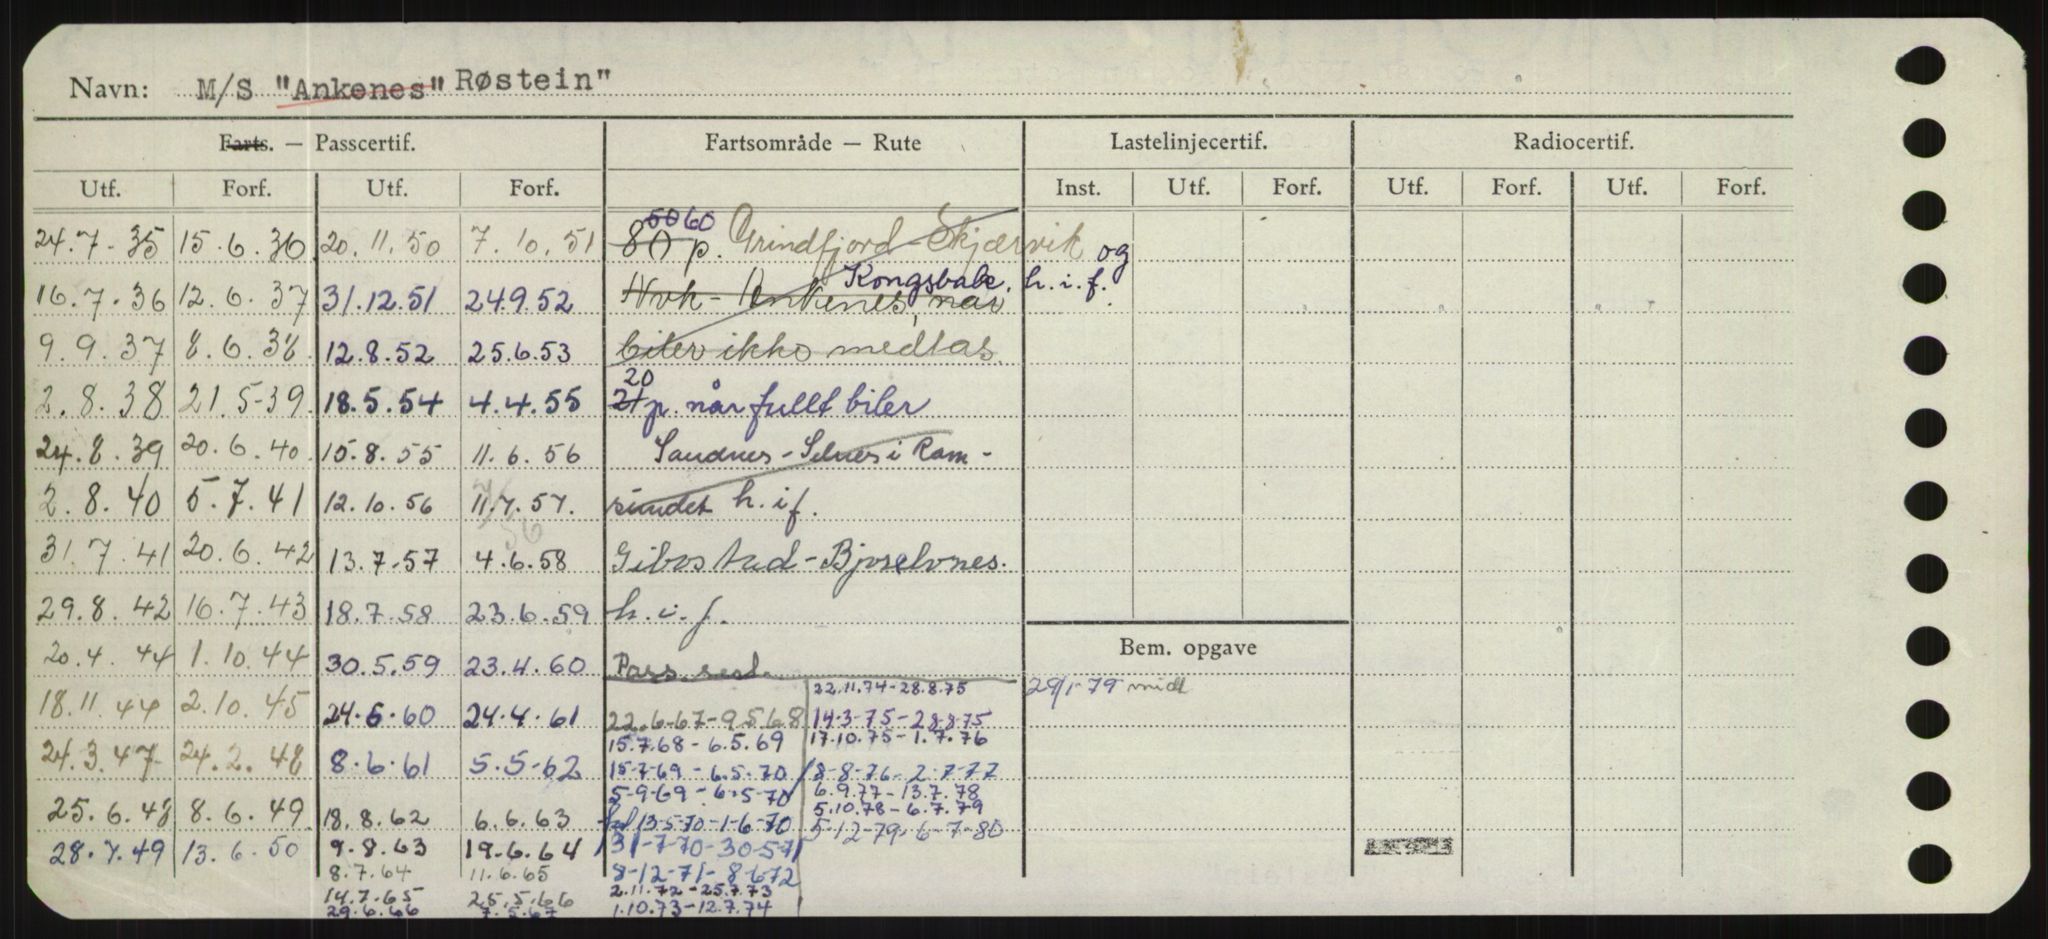 Navn: M/S "Ankenes" Røstein"
Farts. — Passcertif. Fartsområde — Rute Lastelinjecertif. Radiocertif.
Utf. Forf. Utf. Forf. Inst. Utf. Forf. Utf. Forf. Utf. Forf.
50 60
24.7-35 15.6.36 20.11.50 7.10.51 80 p. Grindfjord-Skjærvik og
Kongsbakk, h.i.f.
16.7.36 12.6.37 31.12.51 24.9.52 Nvk-Ankenes, når
9.9.37 8.6.38. 12.8.52 25.6.53 biler ikke medtas.
20
2.8.38 21.5-39. 18.5.54 4.4.55 21 p. når fullt biler
24.8.39 20.6.40. 15.8.55 11.6.56 Sandnes-Selnes i Ram-
2.8.40 5.7.41 12.10.56 11.7.57. sundet h.i f.
31.7.41 20.6.42 13.7.57 4.6.58 Gibostad-Bjorelvnes.
29.8.42 16.7.43 18.7.58 23.6.59 h.i.f.
Bem. opgave
20.4.44 1.10.44 30.5.59 23.4.60 Pass. sert.
22.11.74-28.8.75 29/1-79 midt
18.11.44 2.10.45 24.6.60 24.4.61 22.6-67-9.5.68 14-3-75-28-8-75
15.7.68-6.5.69 17.10.75-1.7.76
24.3.47- 24.2.48 8.6.61 5.5-62 15-7-69-6.5.70 18-8-76-2-7-77
5-9-69-6-5-70 6.9.77-13.7.78
25.6.48 8.6.49. 18.8.62 6.6.63 13-5-70-1-6-70 5.10.78-6.7.79
5-12-79-6-7-80
28.7.49 13.6.50 9.8.63 19.6.64 31-7-70-30-5-71
8.7.64 11.6.65 8-12-71-8-6-72
14.7.65 25.5.66 2.11.72-25.7.73
29.6.66 7.5.67 1.10.73-12.7.74